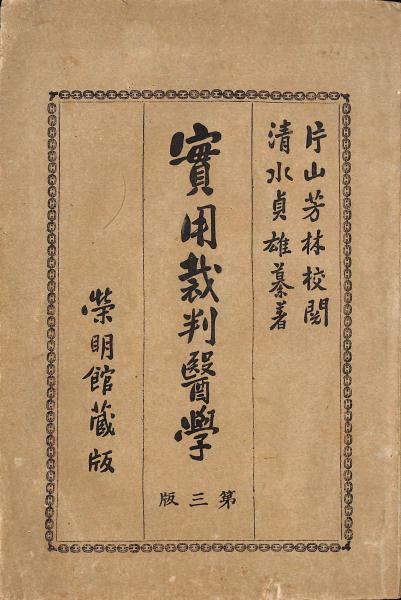 片山芳林校閲
清水貞雄纂著
實用裁判醫學
第三版
榮明館藏版